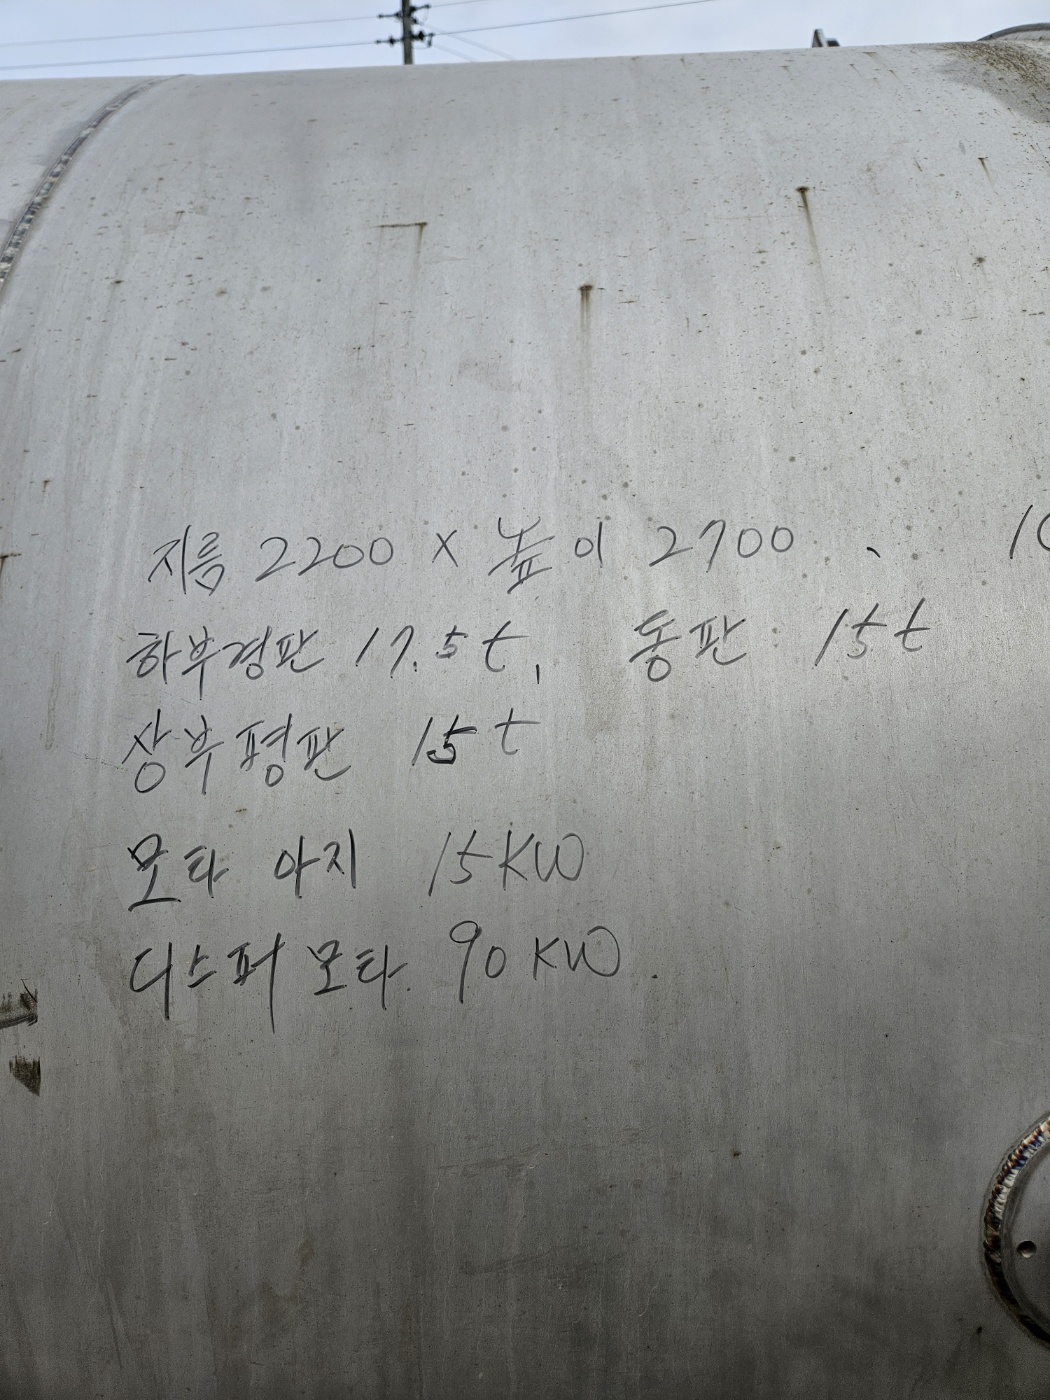 지름 2200 X 높이 2700 、 10
하부경판 17.5t, 동판 15t
상부평판 15t
모타 아지 15KW
디스퍼 모타. 90KW.